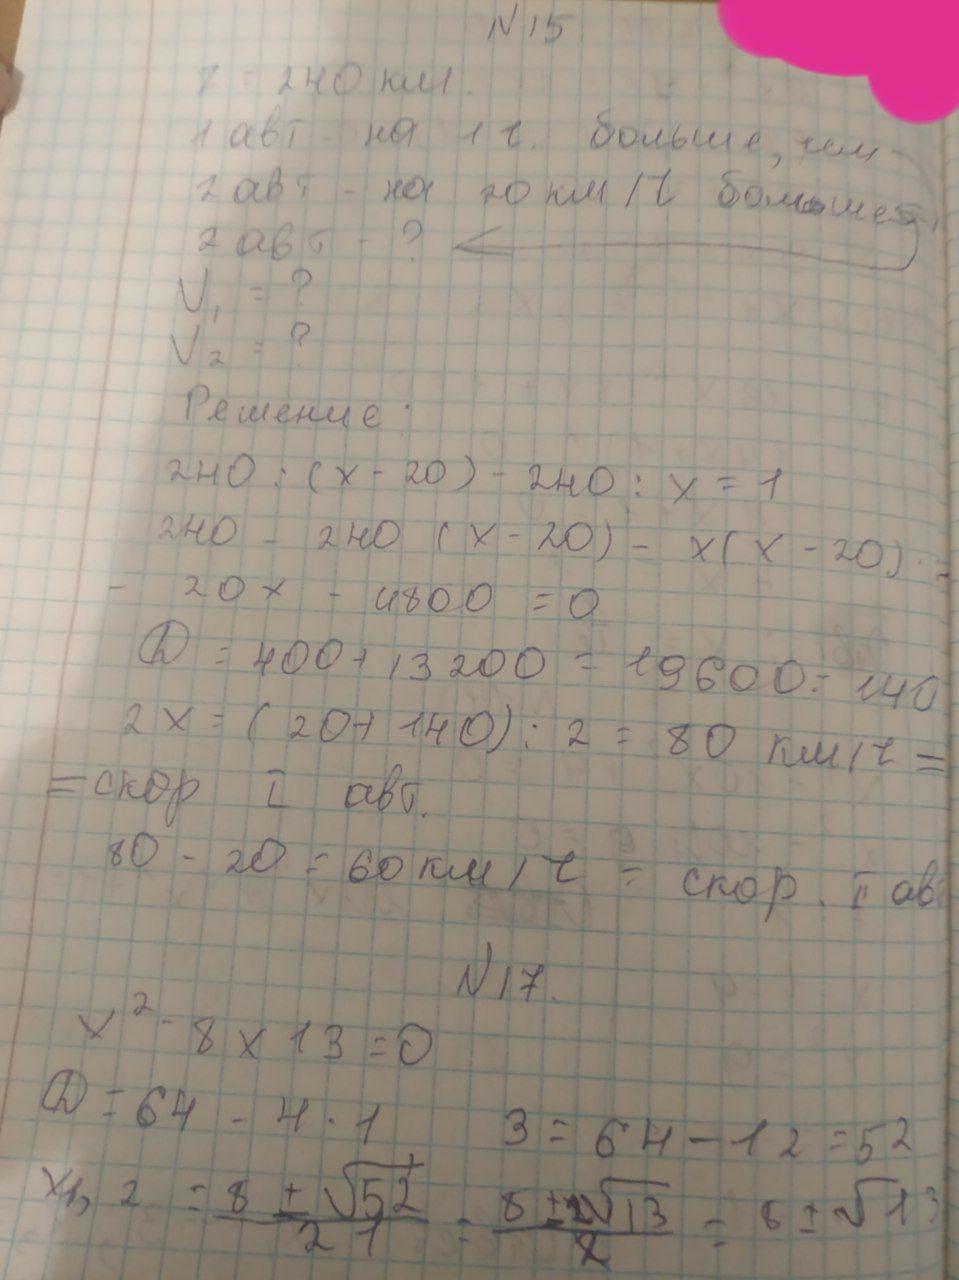 N 15
z = 240 км.
1 авт - на 1 ч. больше, чем
2 авт - на 20 км/ч больше
2 авт - ?
V₁ = ?
V₂ = ?
Решение:
240 : (x - 20) - 240 : x = 1
240 - 240 (x - 20) - x(x - 20) -
- 20x - 4800 = 0
D = 400 + 13200 = 19600 = 140
2x = (20 + 140) : 2 = 80 км/ч =
= скор I авт.
80 - 20 = 60 км/ч = скор. II ав
N 17.
x² - 8x 13 = 0
D = 64 - 4 · 1 3 = 64 - 12 = 52
x1, 2 = 8 ± √52 / 2 1 = 8 ± 2√13 / 2 = 6 ± √13